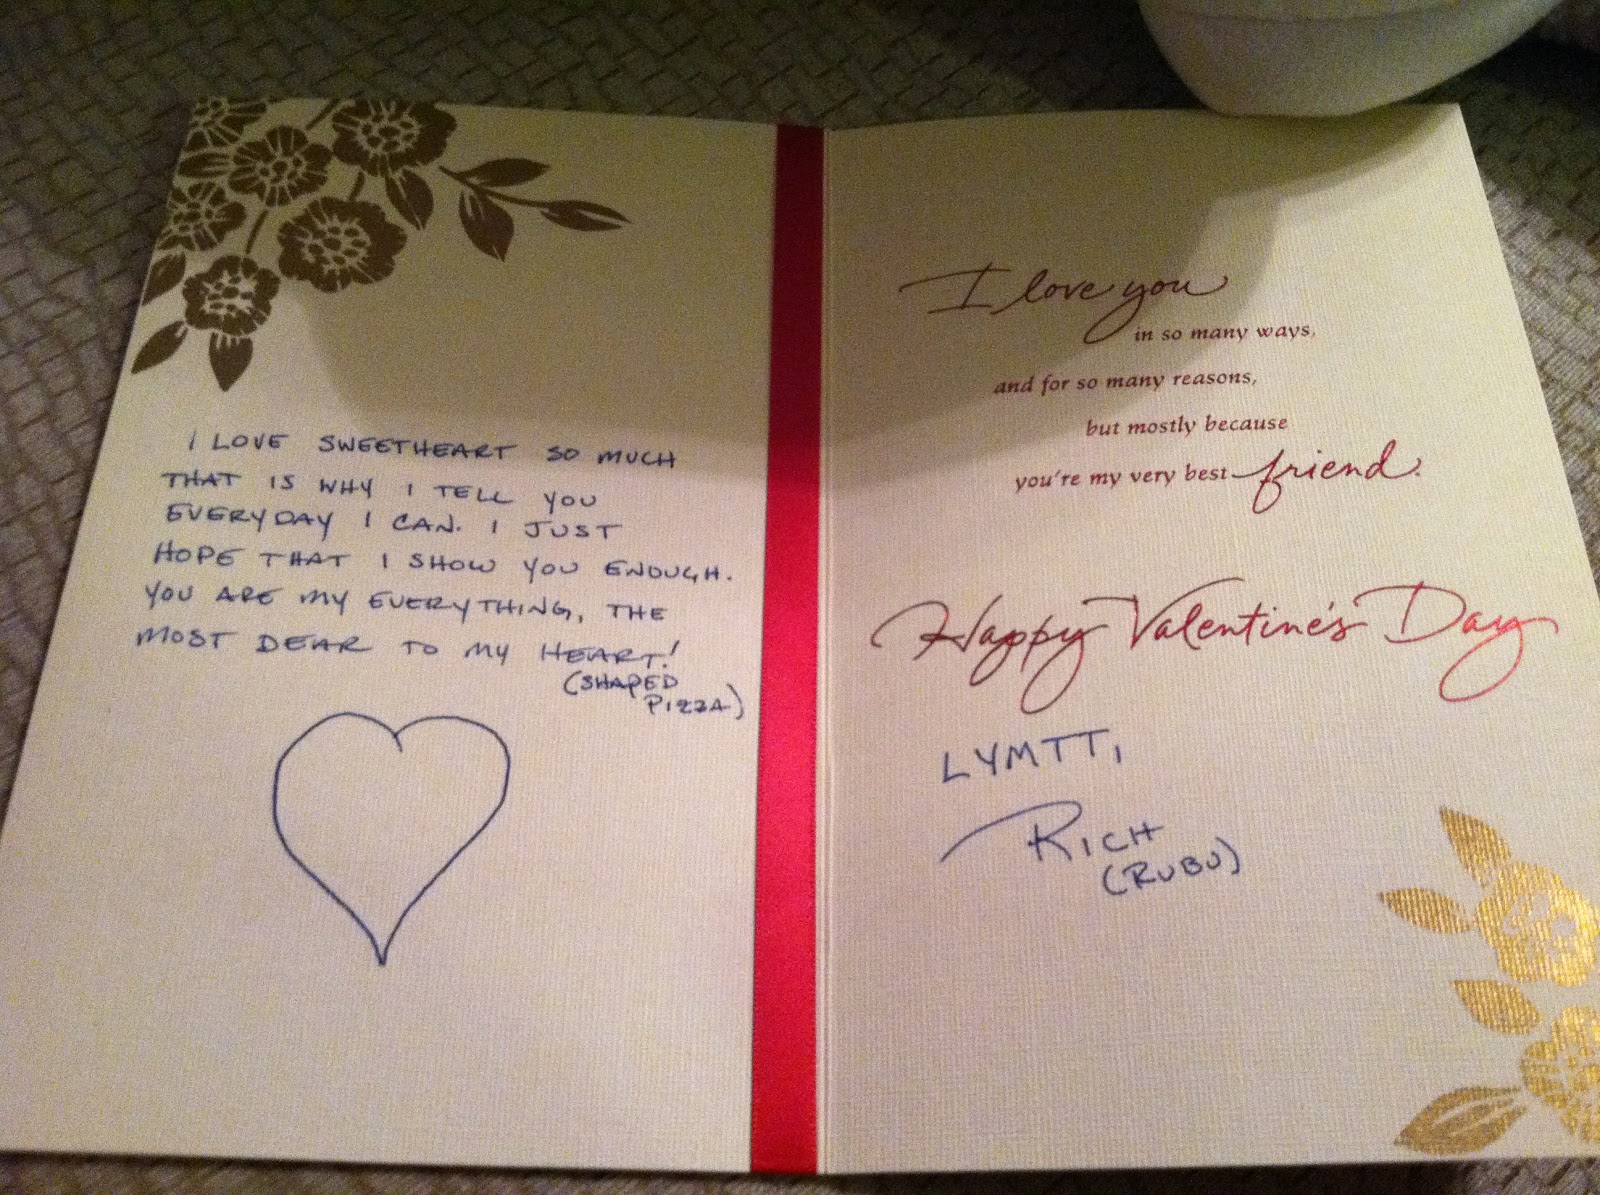 I LOVE SWEETHEART SO MUCH
THAT IS WHY I TELL YOU
EVERYDAY I CAN. I JUST
HOPE THAT I SHOW YOU ENOUGH.
YOU ARE MY EVERYTHING, THE
MOST DEAR TO MY HEART!
(SHAPED
PIZZA)
I love you
in so many ways,
and for so many reasons,
but mostly because
you're my very best friend.
Happy Valentine's Day
LYMTT,
RICH
(RUBU)